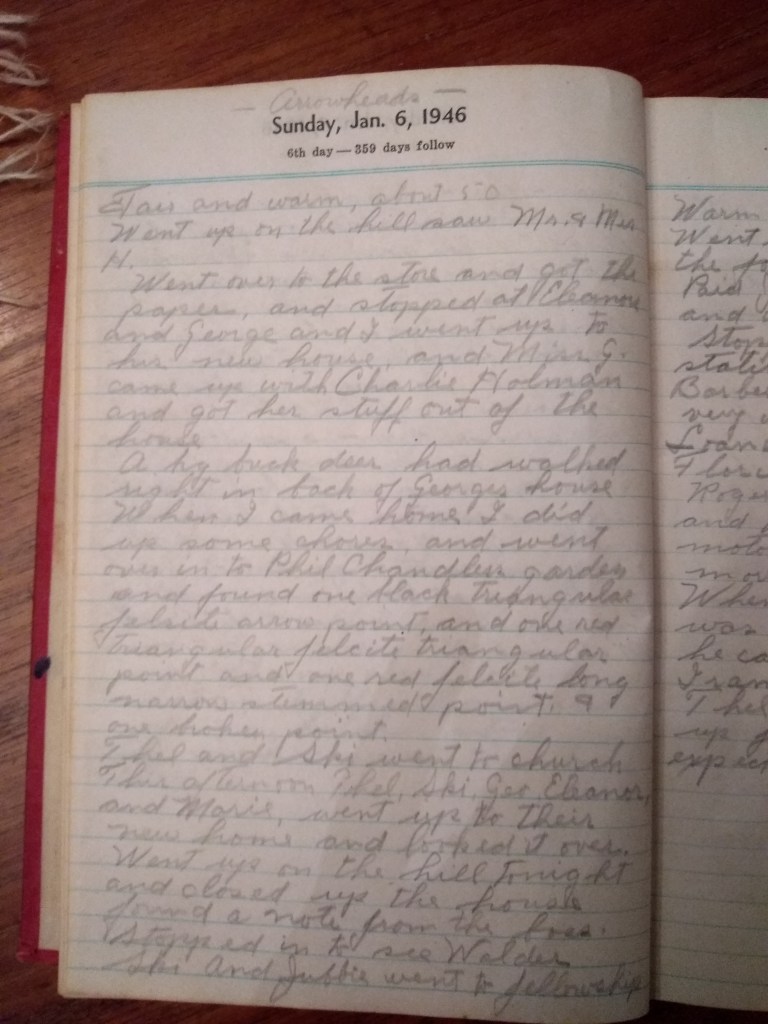 — Arrowheads —
Sunday, Jan. 6, 1946
6th day — 359 days follow
Fair and warm, about 50
Went up on the hill saw Mr. & Mrs
H.
Went over to the store and got the
paper, and stopped at Eleanors
and George and I went up to
his new house, and Miss G.
came up with Charlie Holman
and got her stuff out of the
house
A big buck deer had walked
right in back of Georges house
When I came home I did
up some chores, and went
over in to Phil Chandlers garden
and found one black triangular
felsite arrow point, and one red
triangular felcite triangular
point and one red felcite long
narrow stemmed point. &
one broken point.
Thel and Ski went to church
This afternoon Thel, Ski, Geo, Eleanor,
and Marie, went up to their
new home and looked it over.
Went up on the hill tonight
and closed up the house
found a note from the boss.
Stopped in to see Walder
Ski and Jubbie went to fellowship
Warm
Went
the
Paid
and
Stop
stati
Barbe
very
Loan
Flor
Roge
and
moto
mor
When
was
he ca
I ran
Thel
up
expec